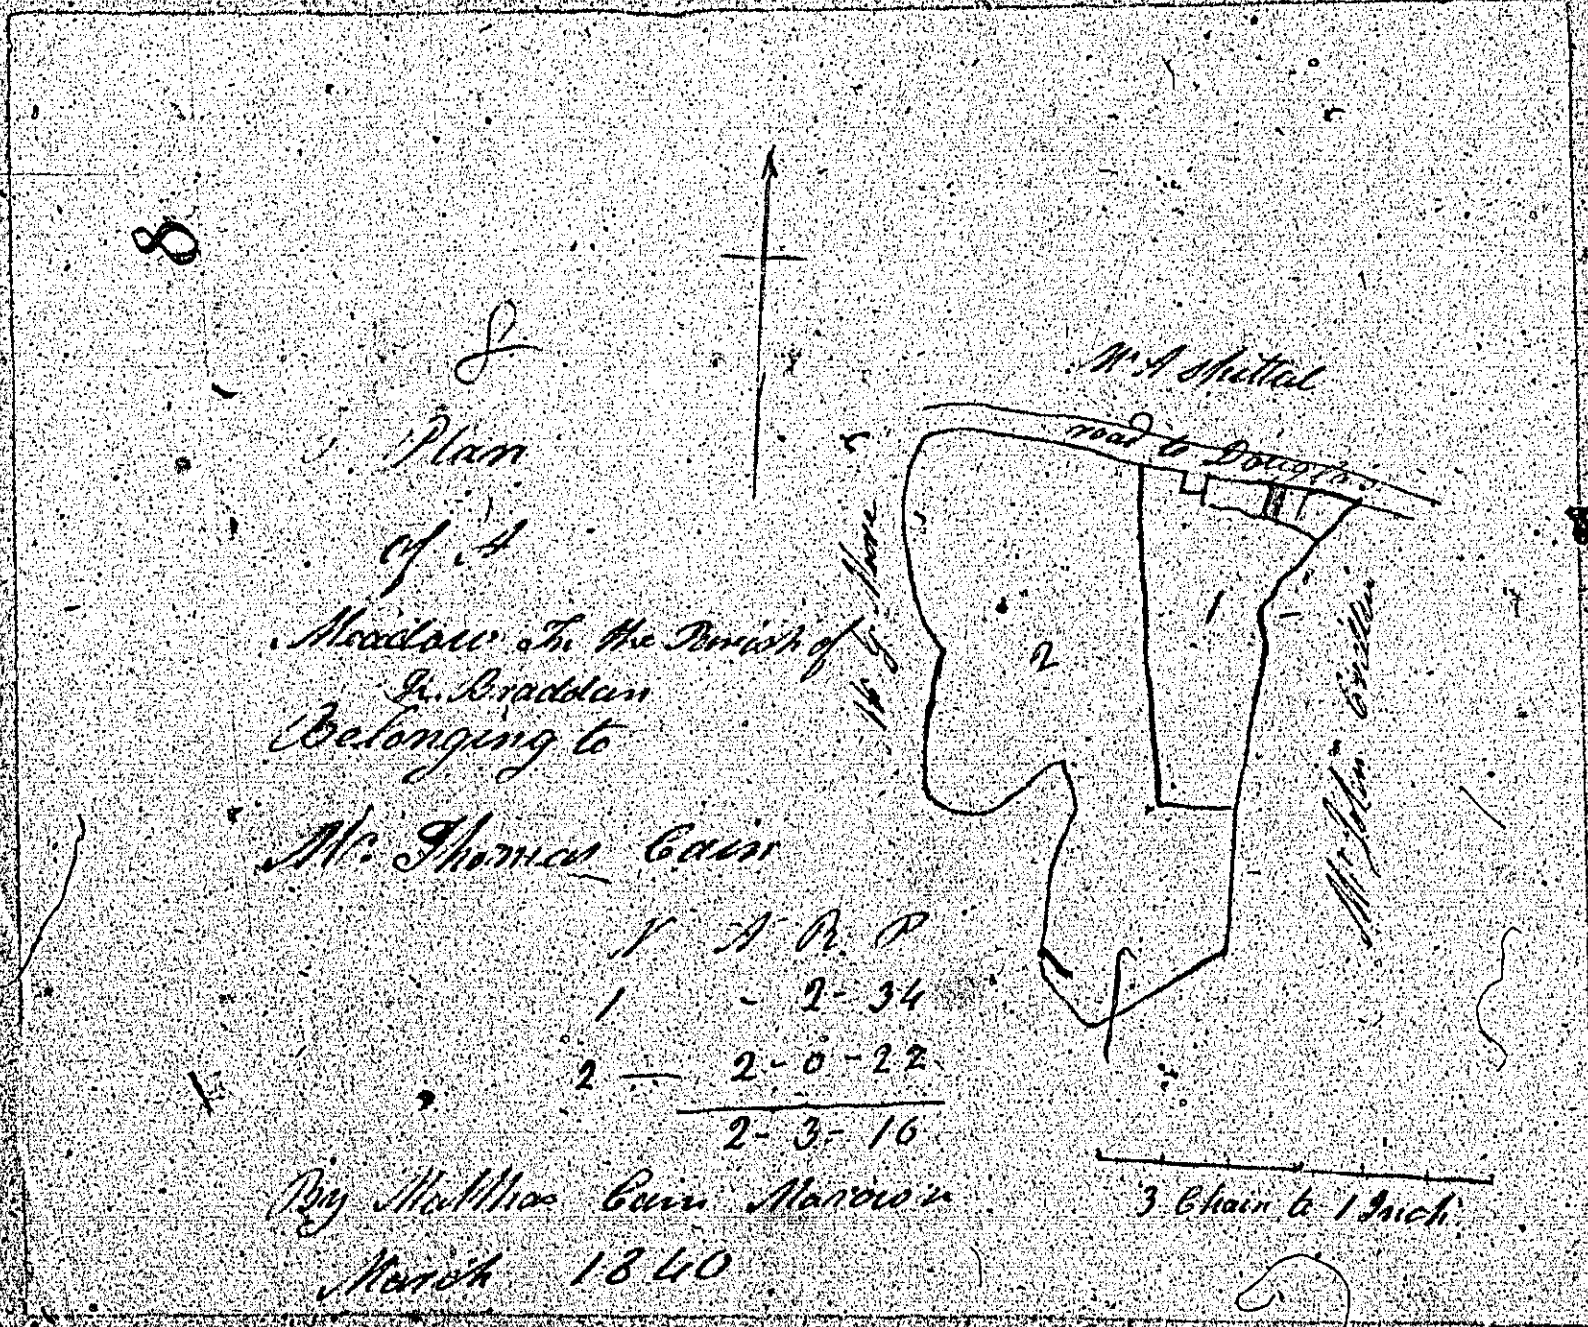 8
8
Plan
of A
Meadow In the Parish of
K. Braddan
Belonging to
Mr. Thomas Cain
N A R P
1 - 2 - 34
2 — 2 - 0 - 22
2 - 3 - 16
By Matthas Cain Marown
March 1840
Mr A Spittal
road to Douglas
2
1
Mr. John
3 Chain to 1 Inch